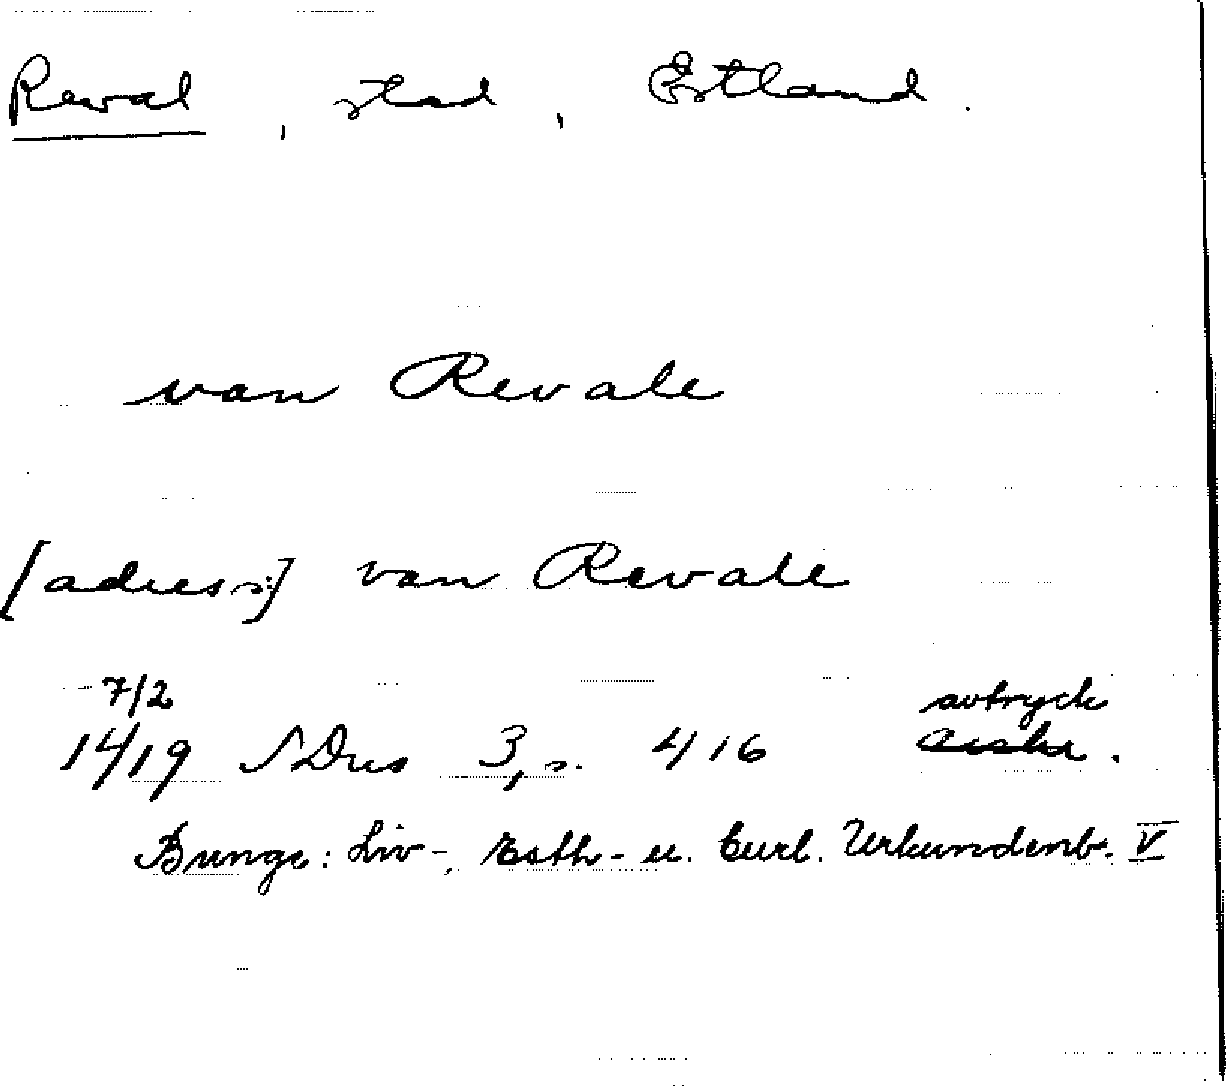 Reval, stad, Estland.
van Revale
[adress:] van Revale
7/2 avtryck
1419 SDns 3, s. 416 avskr.
Bunge: Liv-, Esth- u. Curl. Urkundenb. V